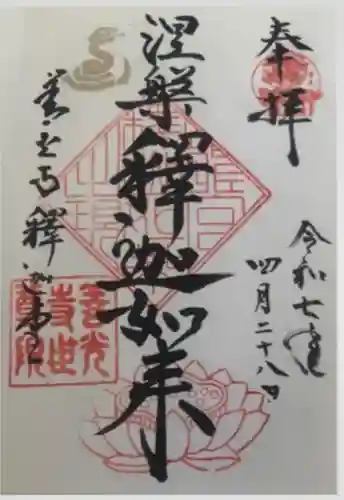 奉拝
令和七年
四月二十八日
涅槃釋迦如来
善光寺釋迦堂